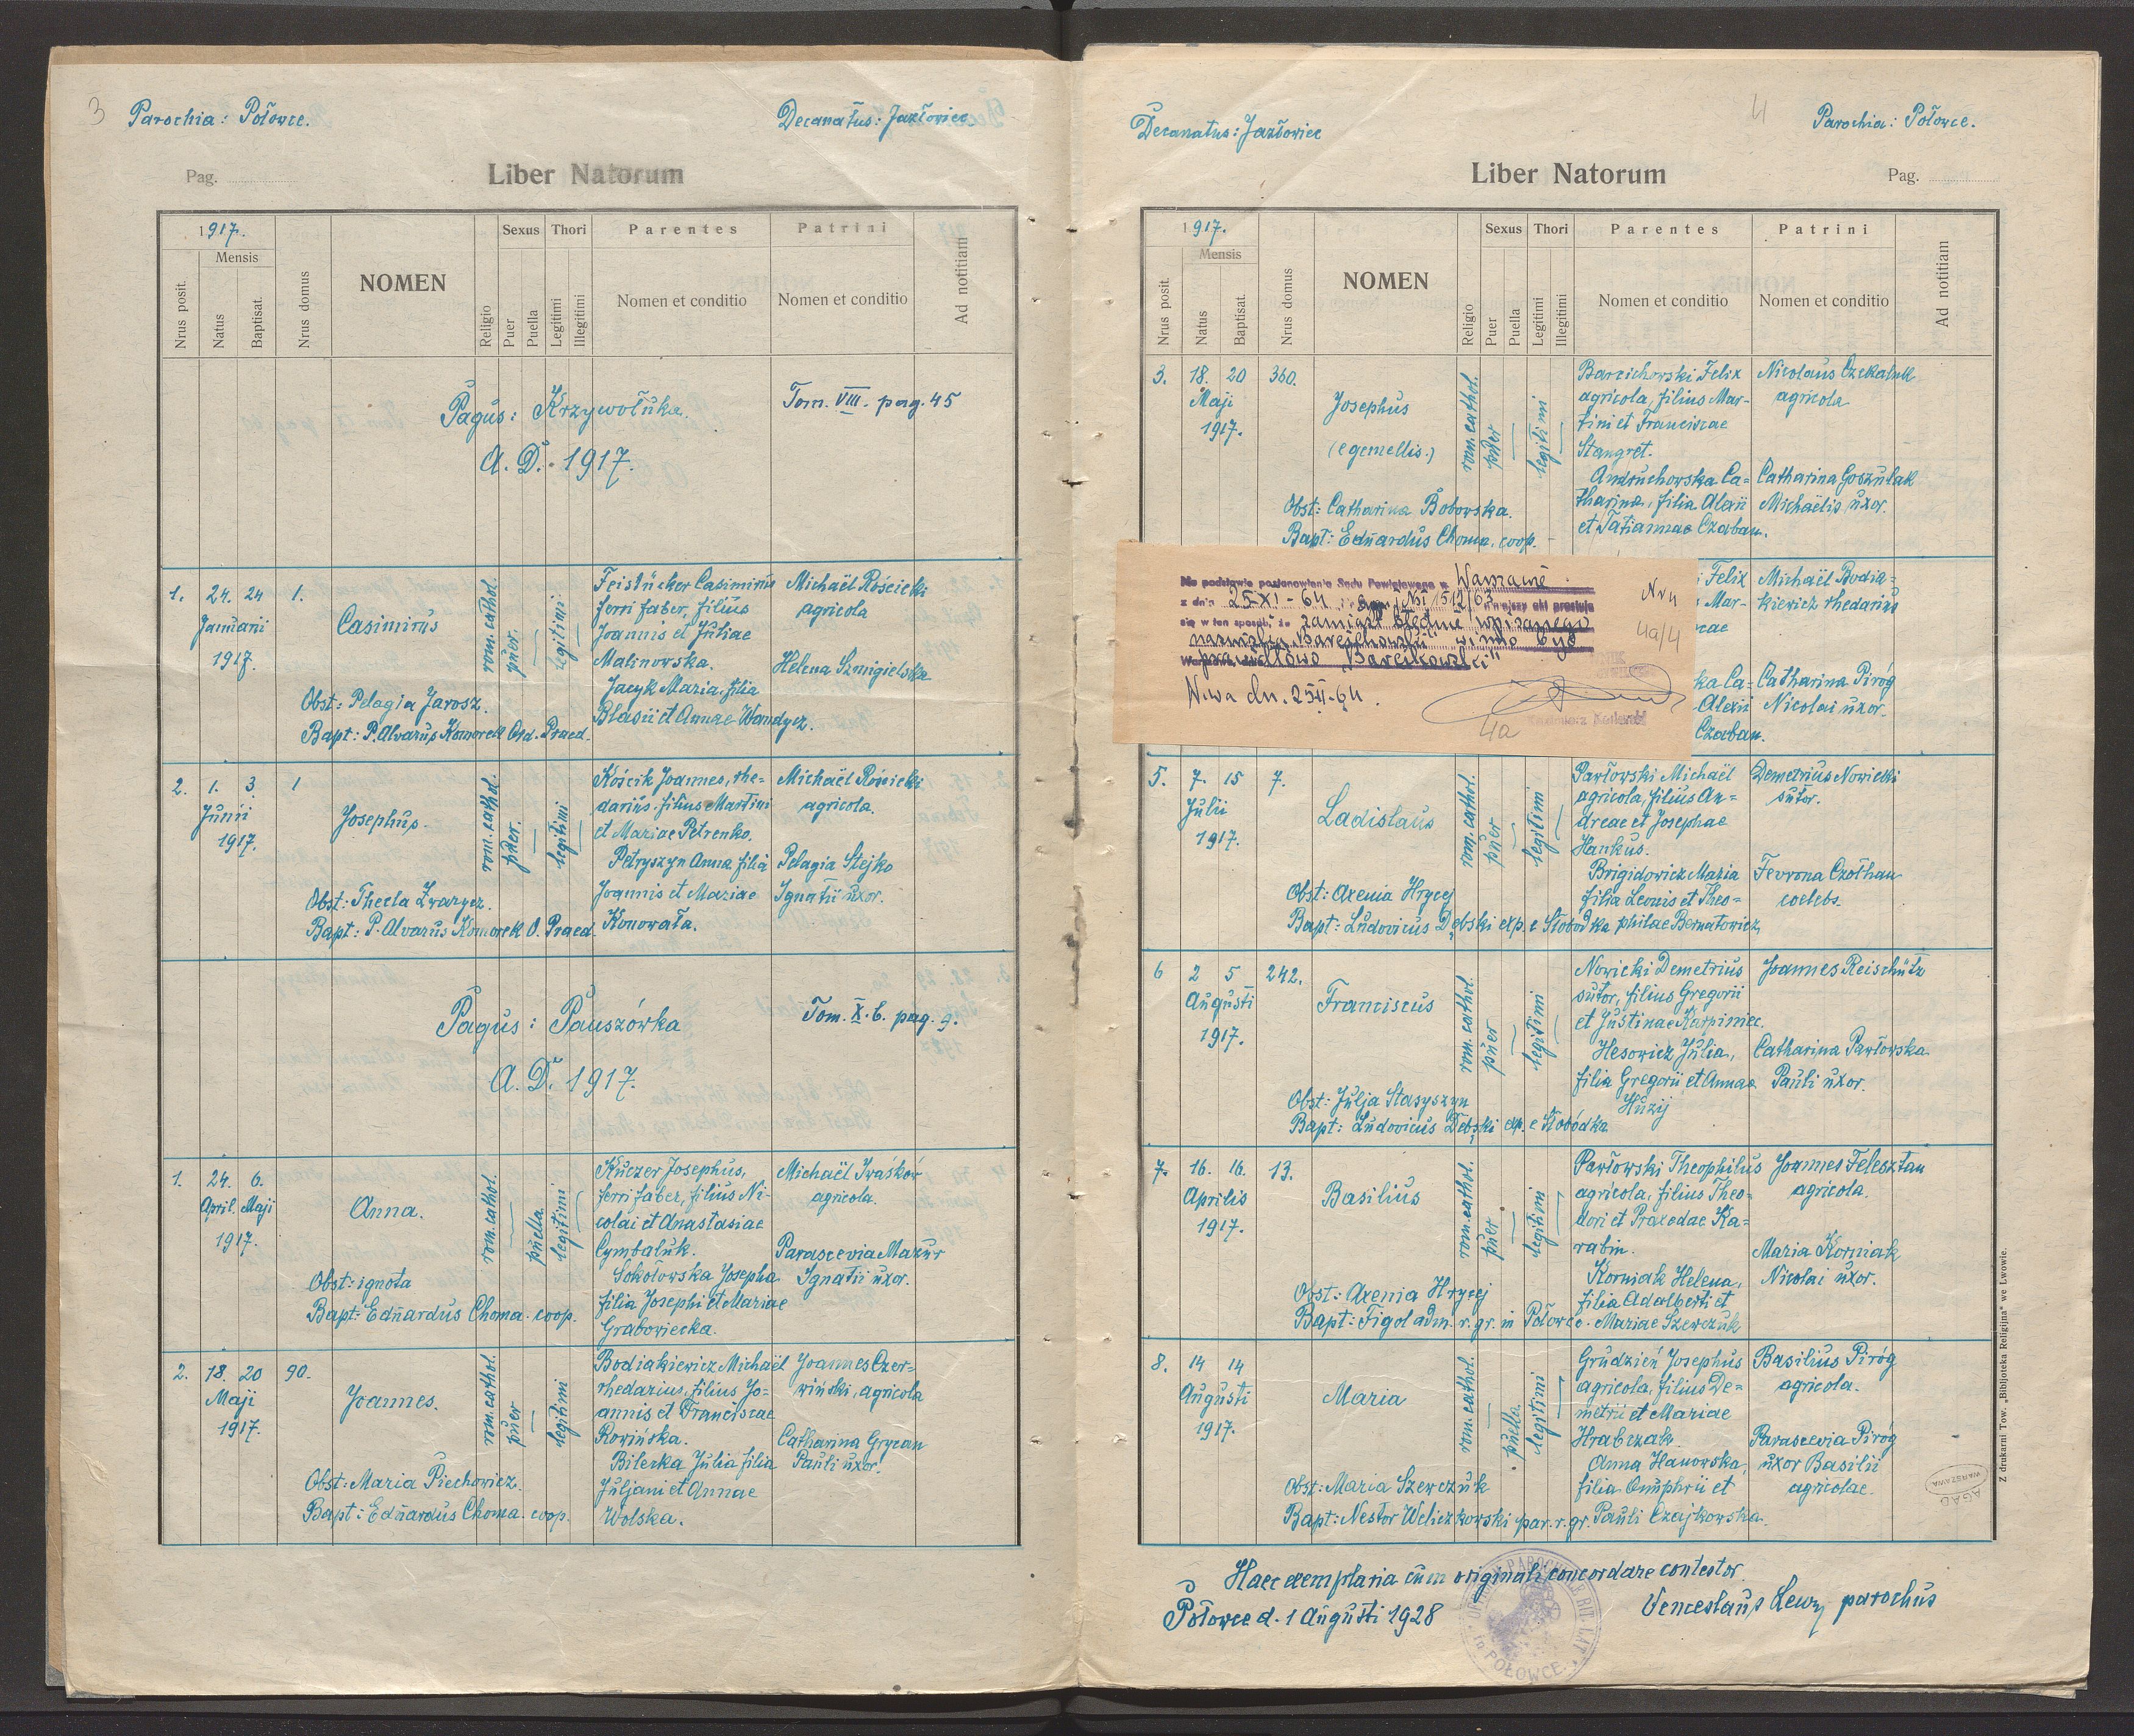 3
Parochia: Połowce.
Decanatus: Jazłowiec
Pag.
Liber Natorum
1917.
Mensis
Nrus posit.
Natus
Baptisat.
Nrus domus
NOMEN
Religio
Sexus
Puer
Puella
Thori
Legitimi
Illegitimi
Parentes
Nomen et conditio
Patrini
Nomen et conditio
Ad notitiam
Pagus: Krzywołuka.
Tom. VIII. pag. 45
A. D. 1917.
1.
24. 24
Januarii
1917.
1.
Casimirus
rom. cathol.
puer.
legitimi
Feistücker Casimirus
ferri faber, filius
Joannis et Juliae
Malinowska.
Jacyk Maria, filia
Blasii et Annae Wandycz.
Michaël Rościcki
agricola
Helena Szmigielska
Obst: Pelagia Jarosz.
Bapt: P. Alvarus Komorek Ord. Praed.
2.
1. 3.
Junii
1917.
1
Josephus.
rom. cathol.
puer.
legitimi
Kościk Joannes, rhe-
darius, filius Martini
et Mariae Petrenko.
Petryszyn Anna filia
Joannis et Mariae
Konowała.
Michaël Rościcki
agricola.
Pelagia Stejko
Ignatii uxor.
Obst: Thecla Zwarycz.
Bapt: P. Alvarus Komorek O. Praed.
Pagus: Pauszówka
Tom. X. b. pag. 9.
A. D. 1917.
1.
24. 6.
April. Maji
1917.
Anna.
rom. cathol.
puella.
legitimi
Kuczer Josephus,
ferri faber, filius Ni-
colai et Anastasiae
Cymbaluk.
Sokołowska Josepha
filia Josephi et Mariae
Grabowiecka.
Michaël Iwaśków
agricola.
Parascevia Mazur
Ignatii uxor.
Obst: ignota
Bapt: Eduardus Choma. coop.
2.
18. 20
Maji
1917.
90.
Joannes.
rom. cathol.
puer
legitimi
Bodiakiewicz Michaël
rhedarius, filius Jo-
annis et Franciscae
Rowińska.
Bilecka Julia filia
Juljani et Annae
Wolska.
Joannes Czer-
wiński, agricola
Catharina Grycan
Pauli uxor.
Obst: Maria Piechowicz.
Bapt: Eduardus Choma. coop.
Decanatus: Jazłowiec
4
Parochia: Połowce.
Liber Natorum
Pag.
1917.
Mensis
Nrus posit.
Natus
Baptisat.
Nrus domus
NOMEN
Religio
Sexus
Puer
Puella
Thori
Legitimi
Illegitimi
Parentes
Nomen et conditio
Patrini
Nomen et conditio
Ad notitiam
3.
18. 20
Maji
1917.
360.
Josephus
(e gemellis.)
rom. cathol.
puer
legitimi
Barcichowski Felix
agricola, filius Mar-
tini et Franciscae
Stangret.
Andruchowska Ca=
tharina, filia Alexii
et Tatiannae Czaban.
Nicolaus Czekaluk
agricola
Catharina Goszulak
Michaëlis uxor.
Obst: Catharina Bobowska.
Bapt: Eduardus Choma. coop.
Na podstawie postanowienia Sądu Powiatowego w Warszawie
z dnia 25-XI-64 Ns I 1512/63 niniejszy akt prostuje
się w ten sposób, że zamiast błędnie wpisanego
nazwiska "Barcichowski" winno być
prawidłowo "Barcikowski"
Nr 4
4a/4
W-wa dn. 25 XI-64.
4a
Felix
Mar-
cae
ka Ca-
Alexii
Czaban.
Michaël Bodia-
kiewicz rhedarius
Catharina Piróg
Nicolai uxor.
5.
7. 15
Julii
1917.
7.
Ladislaus
rom. cathol.
puer
legitimi
Pawłowski Michaël
agricola, filius An=
dreae et Josephae
Hankus.
Brigidowicz Maria
filia Leonis et Theo=
philae Bernatowicz,
Demetrius Nowicki
sutor.
Fevrona Czołhan
coelebs.
Obst: Axenia Hrycej
Bapt: Ludovicus Dębski exp. e Słobódka
6
2 5
Augusti
1917.
242.
Franciscus
rom. cathol.
puer
legitimi
Nowicki Demetrius
sutor, filius Gregorii
et Justinae Karpiniec.
Hesowicz Julia,
filia Gregorii et Annae
Huzij
Joannes Reischütz
Catharina Pawłowska
Pauli uxor.
Obst: Julja Stasyszyn
Bapt: Ludovicus Dębski exp. e Słobódka
7.
16. 16.
Aprilis
1917.
13.
Basilius
rom. cathol.
puer
legitimi
Pawłowski Theophilus
agricola, filius Theo-
dori et Praxedae Ka=
rabin.
Korniak Helena,
filia Adalberti et
Mariae Szewczuk
Joannes Felesztan
agricola.
Maria Korniak
Nicolai uxor.
Obst: Axenia Hrycej
Bapt: Figol adm. r. gr. in Połowce.
8.
14 14
Augusti
1917.
Maria
rom. cathol.
puella.
legitimi
Grudzień Josephus
agricola, filius De=
metrii et Mariae
Hrabczak.
Anna Hanowska,
filia Onuphrii et
Pauli Czajkowska.
Basilius Piróg
agricola.
Parascevia Piróg
uxor Basilii
agricolae.
Obst: Maria Szewczuk
Bapt: Nestor Weliczkowski par. r. gr.
AGAD
WARSZAWA
Z drukarni Tow. „Bibljoteka Religijna" we Lwowie.
Haec exemplaria cum originali concordare contestor.
Połowce d. 1 Augusti 1928
Venceslaus Lewy parochus
PAROCHIALE RIT. LAT.
in POŁOWCE